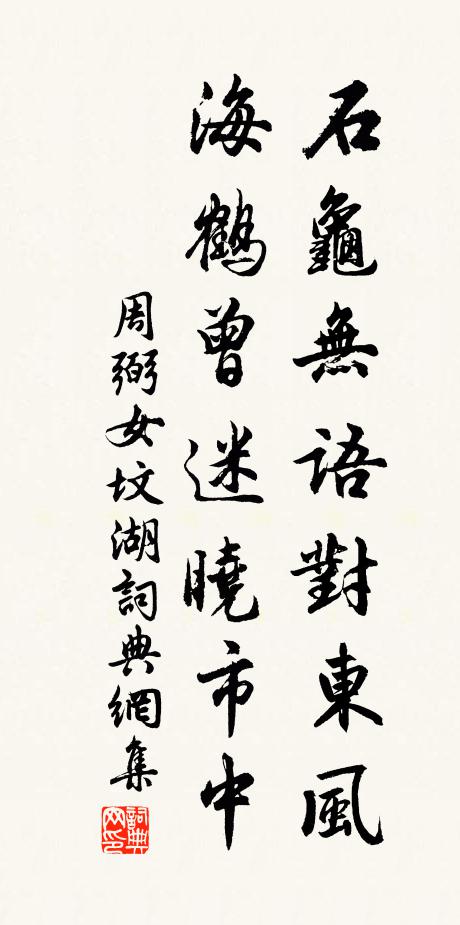 石龜無語對東風
海鶴曾迷曉市中
周弼女墳湖詞典網集
詞典网印